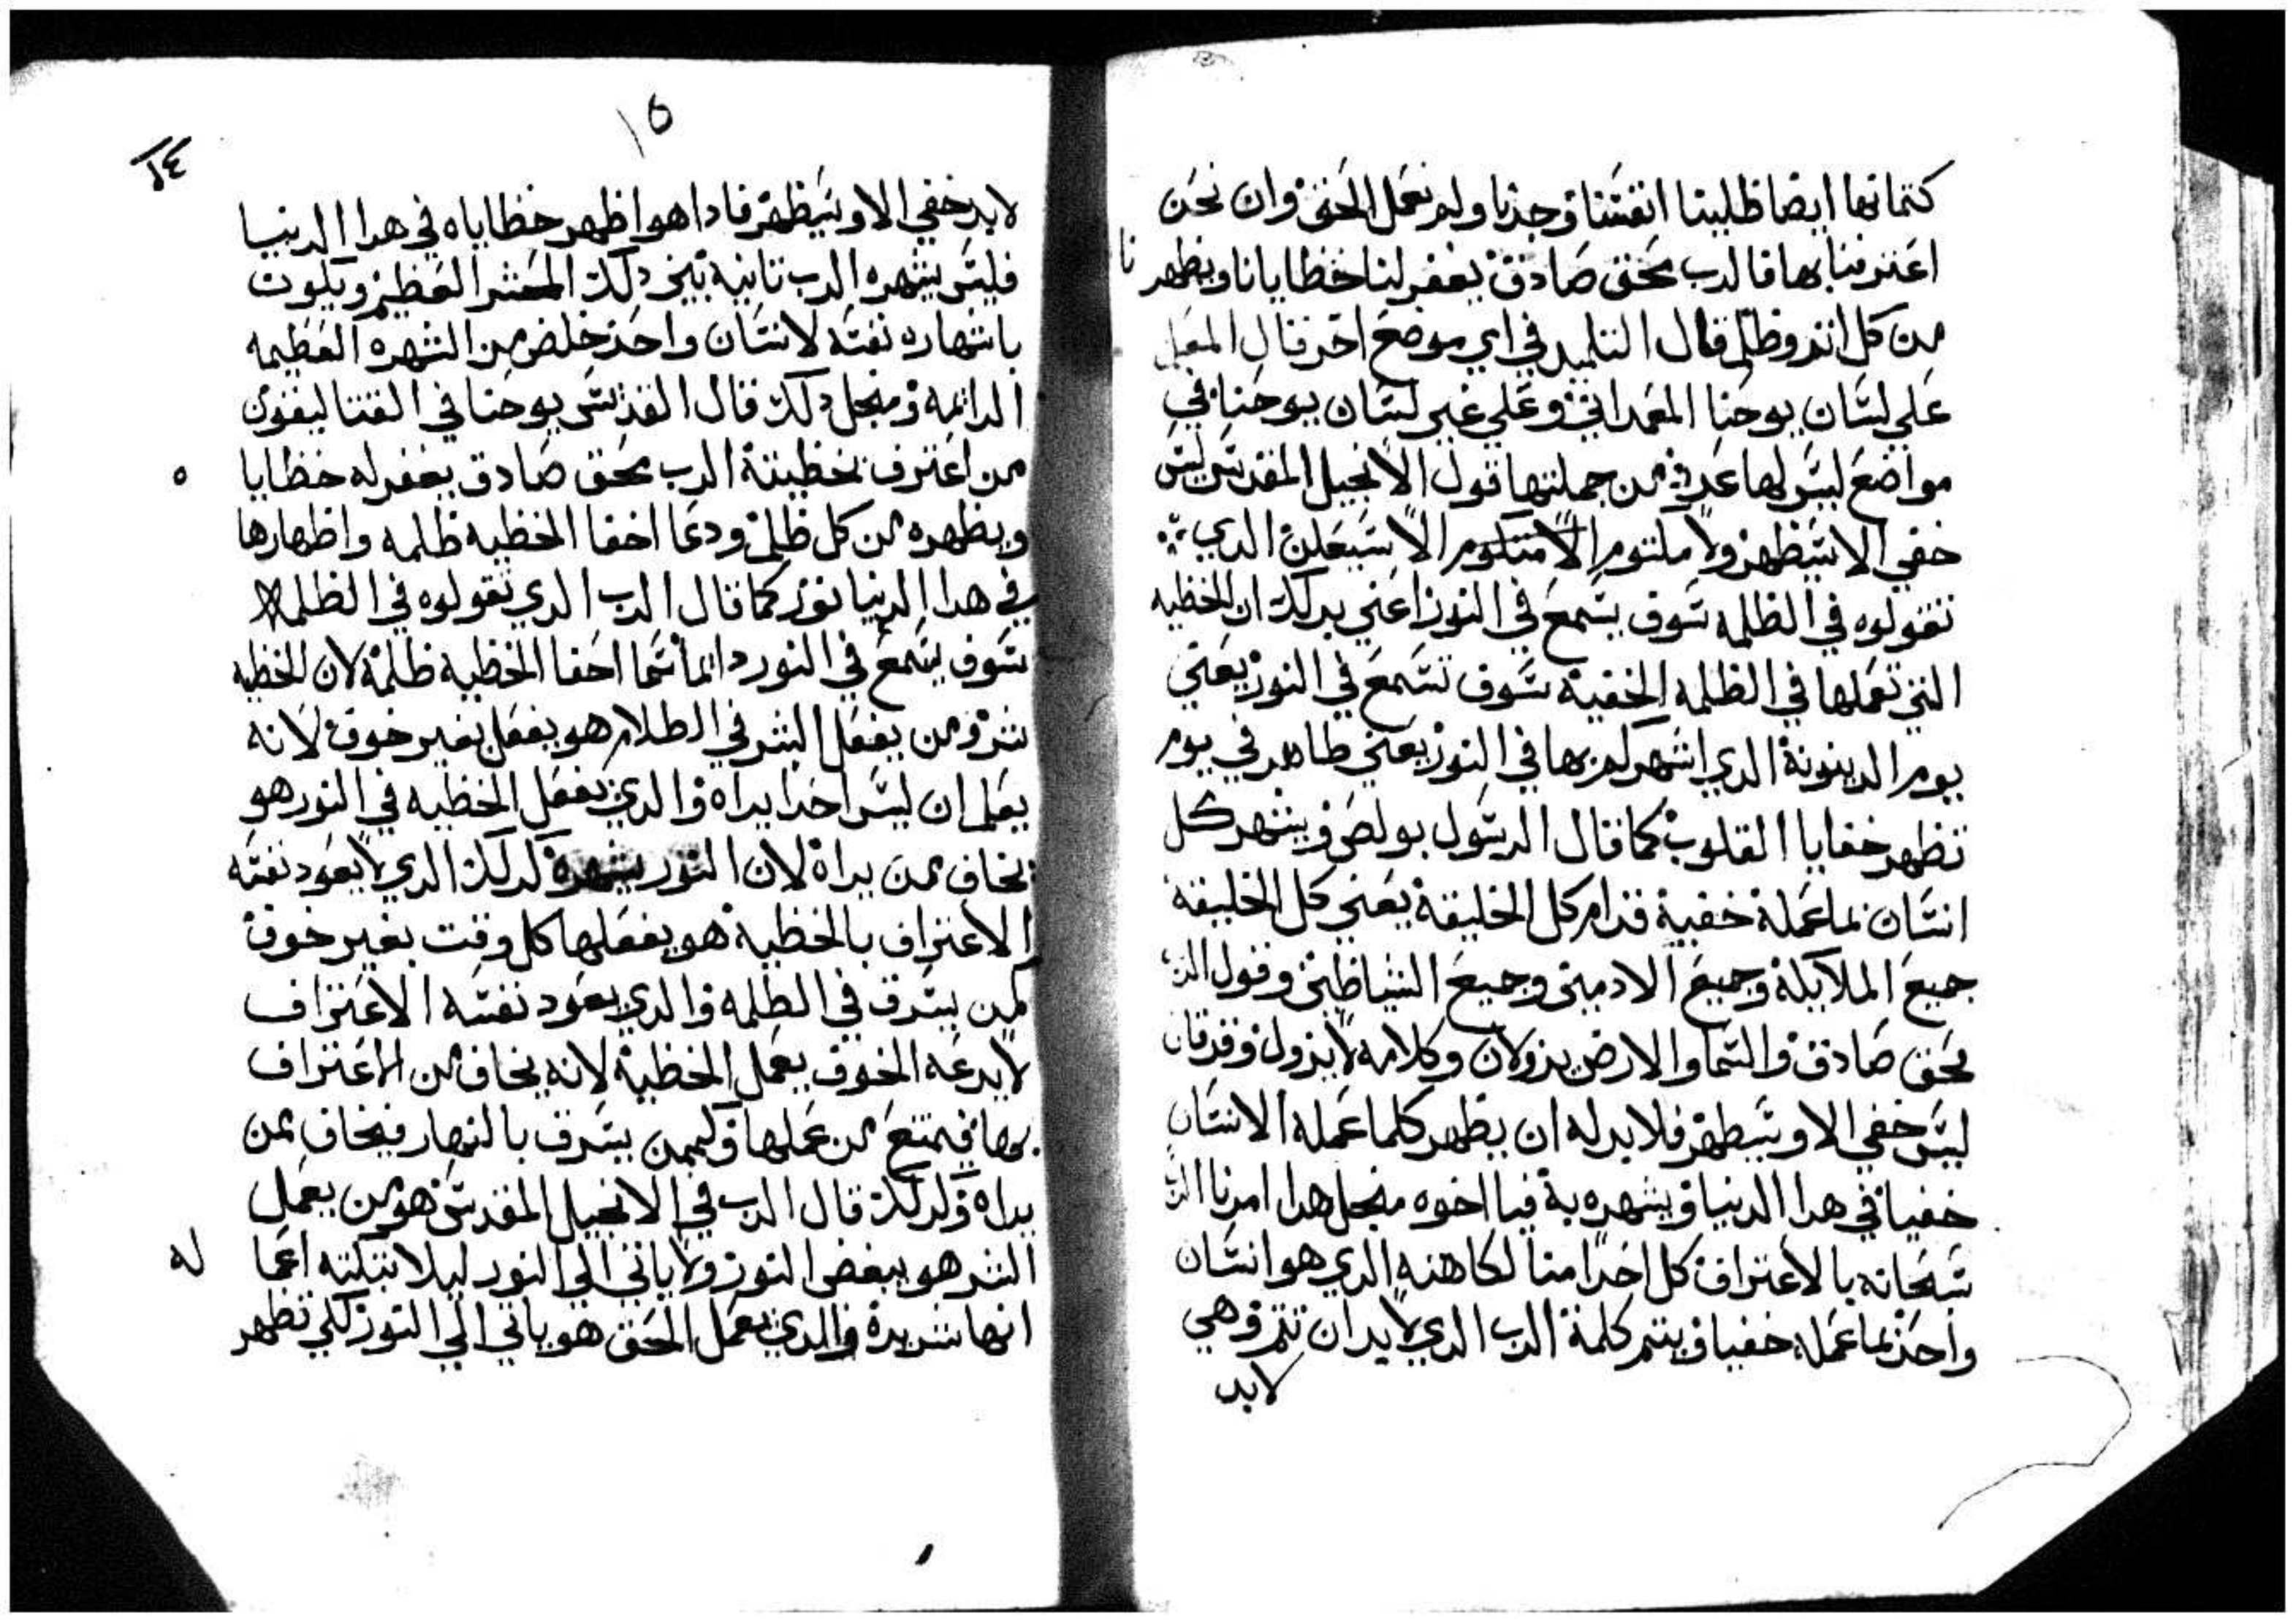 كتمانها ايضا ظلينا انفسنا وجدنا ولم نعمل الحق وان نحن
اعترفنا بها فالرب محق صادق يغفر لنا خطايانا ويطهرنا
من كل اثم وظلم قال التلميد في اي موضع اخر قال المعلم
علي لسان يوحنا المعمداني وعلي غير لسان يوحنا في
مواضع ليس لها عدد من جملتها قول الانجيل المقدس ليس
خفي الا سيظهر ولا ملتوم الا متكوم الا سيعلن الدي
تقولوه في الظلمه سوف يسمع في النور اعني بدلك ان الخطيه
التي تعملها في الظلمه الخفية سوف تسمع في النور يعني
يوم الدينونة الدي اشهرلم بها في النور يعني ظاهر في يوم
تظهر خفايا القلوب كما قال الرسول بولص ويشهر كل
انسان بما عمله خفية قدام كل الخليقة يعني كل الخليقه
جميع الملايكة وجميع الادميين وجميع الشياطين وقول الرب
محق صادق والسما والارض يزولان وكلامه لا يزول وقد قال
ليس خفي الا وسيظهر فلا بد له ان يظهر كلما عمله الانسان
خفيا في هدا الدنيا ويشهره به فيا اخوه منجل هدا امرنا الرب
سبحانه بالاعتراف كل احدا منا لكاهنه الدي هو انسان
واحد بما عمله خفيا ويتم كلمة الرب الدي لا بد ان تتم وهي
لابد
١٥
١٤
لا بد خفي الا وسيظهر فادا هو اظهر خطاياه في هدا الدنيا
فليس يشهره الرب تانيه بين دلك المحشر العظيم ويكون
باشهاره نفسه لانسان واحد خلص من الشهره العظيمه
الدائمه ومنجل دلك قال القديس يوحنا في القتاليقون
من اعترف بخطيته الرب محق صادق يغفر له خطايا ه
ويطهره من كل ظلم ودعا اخفا الخطيه ظلمه واظهارها
في هدا الدنيا نور كما قال الرب الدي تقولوه في الظلمه
سوف يسمع في النور دائما سما اخفا الخطيه ظلمة لان الخطيه
شر ومن يفعل الشر في الظلام هو يفعل بغير خوف لانه
يعلم ان ليس احدا يراه والدي يفعل الخطيه في النور هو
يخاف ممن يراه لان النور يشهره كدلك الدي لا يعود نفسه
الاعتراف بالخطية هو يفعلها كل وقت بغير خوف
كمن يسرق في الظلمه والدي يعود نفسه الاعتراف
لا يدعه الخوف يعمل الخطية لانه يخاف من الاعتراف
بها فيمتنع من عملها وكيمن يسرق بالنهار فيخاف ممن
يراه ولدلك قال الرب في الانجيل المقدس هو من يعمل
الشر هو يبغض النور ولا ياتي الي النور ليلا تبكته اعما له
انها شريرة والدي يعمل الحق هو ياتي الي النور لكي تظهر